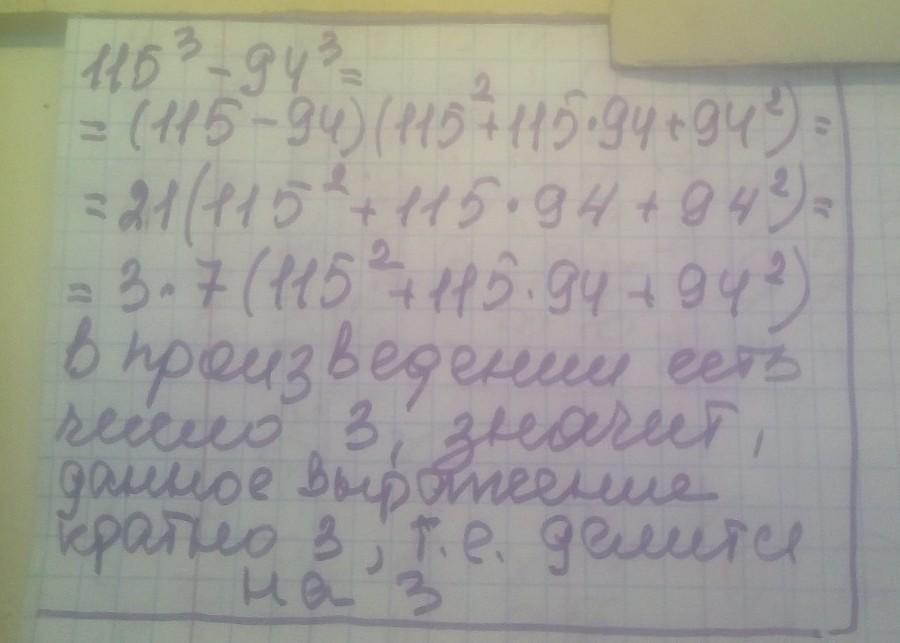 115³ - 94³ =
= (115 - 94)(115² + 115·94 + 94²) =
= 21(115² + 115·94 + 94²) =
= 3·7(115² + 115·94 + 94²)
В произведении есть
число 3, значит,
данное выражение
кратно 3, т.е. делится
на 3